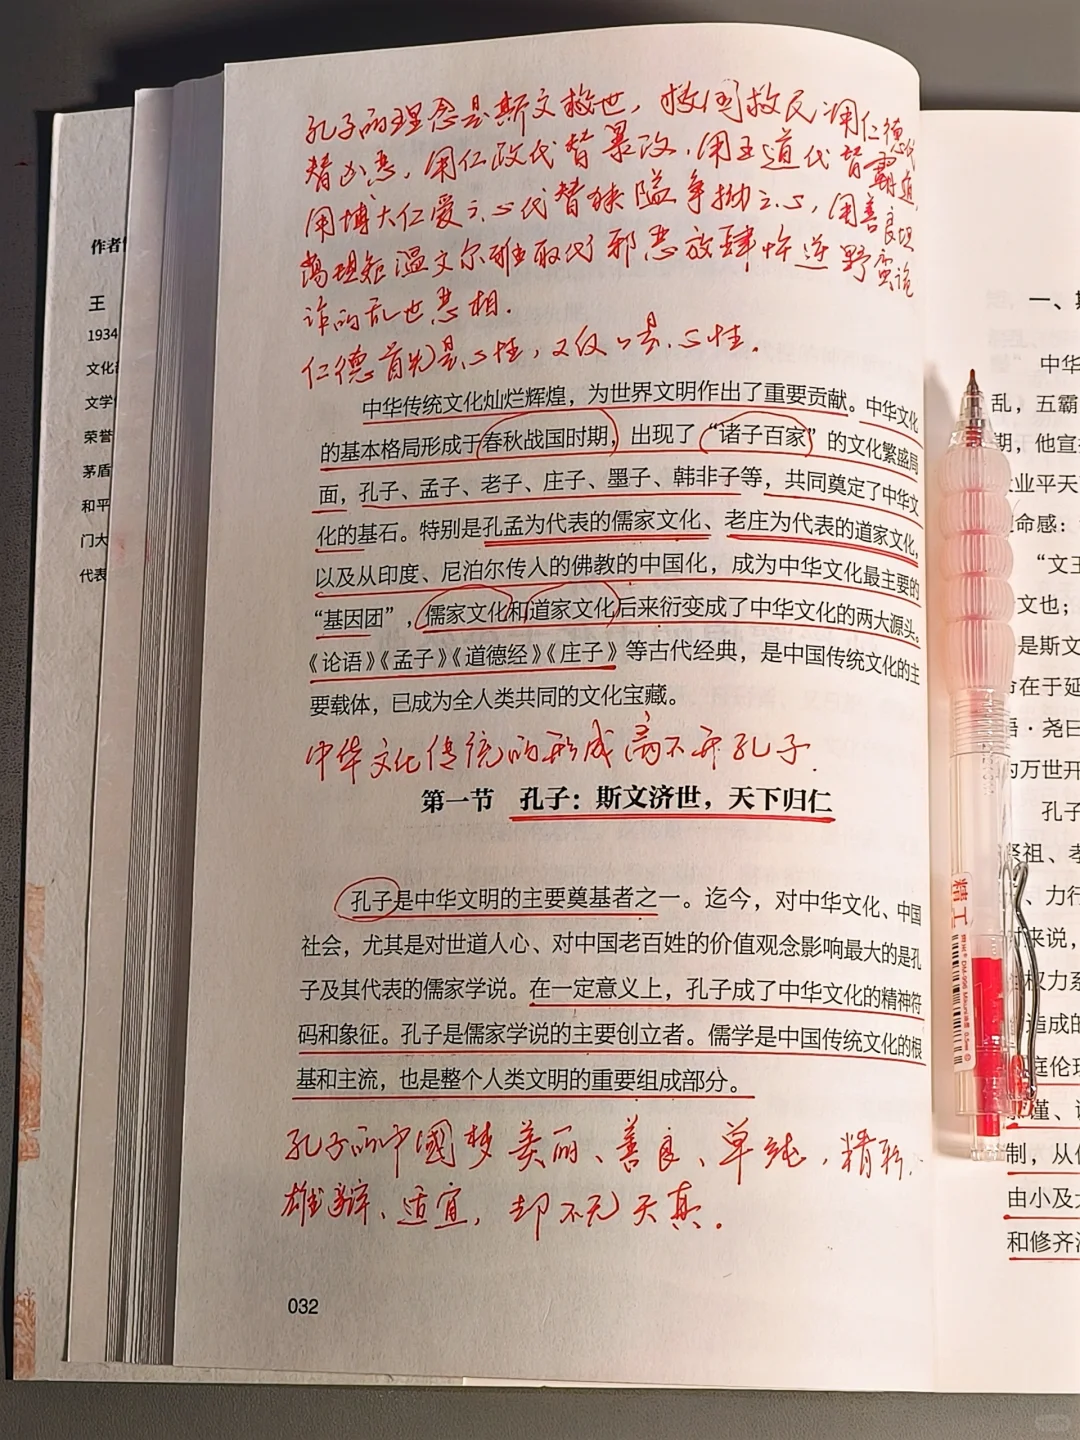 孔子的理念是斯文救世，救国救民，用仁德代
替凶恶，用仁政代替暴政，用王道代替霸道，
用博大仁爱之心代替狭隘争拗之心，用善良坦
荡规矩温文尔雅取代邪恶放肆忤逆野蛮诡
诈的乱世恶相。
仁德首先是心性，又仅仅是心性。
中华传统文化灿烂辉煌，为世界文明作出了重要贡献。中华文化
的基本格局形成于春秋战国时期，出现了“诸子百家”的文化繁盛局
面，孔子、孟子、老子、庄子、墨子、韩非子等，共同奠定了中华文
化的基石。特别是孔孟为代表的儒家文化、老庄为代表的道家文化，
以及从印度、尼泊尔传入的佛教的中国化，成为中华文化最主要的
“基因团”，儒家文化和道家文化后来衍变成了中华文化的两大源头。
《论语》《孟子》《道德经》《庄子》等古代经典，是中国传统文化的主
要载体，已成为全人类共同的文化宝藏。
中华文化传统的形成离不开孔子.
第一节 孔子：斯文济世，天下归仁
孔子是中华文明的主要奠基者之一。迄今，对中华文化、中国
社会，尤其是对世道人心、对中国老百姓的价值观念影响最大的是孔
子及其代表的儒家学说。在一定意义上，孔子成了中华文化的精神符
码和象征。孔子是儒家学说的主要创立者。儒学是中国传统文化的根
基和主流，也是整个人类文明的重要组成部分。
孔子的中國梦美丽、善良、单纯，精彩、
雄辩、适宜，却不无天真。
032
作者
王
1934
文化
文学
荣誉
茅盾
和平
门大
代表
一、
中华
乱，五霸
期，他宣
业平天
命感：
“文王
文也；
是斯文
在于延
语·尧曰
为万世开
孔子
祭祖、孝
、力行
来说，
权力系
造成的
庭伦理
谨、
制，从
由小及大
和修齐治
精工